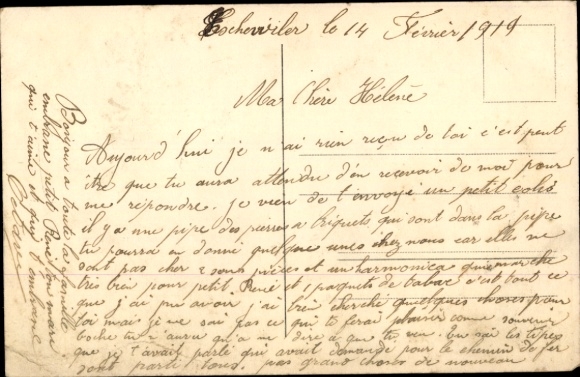 Eschweiler le 14 Février 1919
Ma Chère Hélène
Aujourd'hui je n'ai rien reçu de toi c'est peut
être que tu aura attendu d'en recevoir de moi pour
me répondre. je vien de t'envoyé un petit colis
il y a une pipe des pierres a briquets qui sont dans la pipe
tu pourra en donné quelque unes chez nous car elles ne
sont pas cher 2 sous pièces et un harmonica qui marche
très bien pour petit René et 2 paquets de tabac c'est tout ce
que j'ai pu avoir j'ai bien cherché quelques choses pour
toi mais je ne sai pas ce qui te ferai plaisir comme souvenir
boche tu aura qu'a me dire ce que tu veu. tu sai les types
que je t'avait parlé qui avait demandé pour le chemin de fer
sont parti tous. pas grand chose de nouveau
Bonjour a toute la famille
embrasse petit René ton mari
qui t'aime et qui t'embrasse
Octave